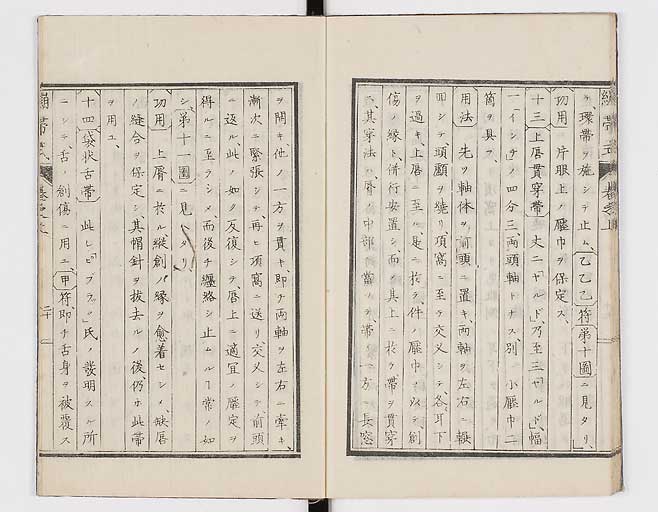 テ、環帯ヲ施シテ止ム、乙乙乙符第十圖ニ見タリ、
功用 片眼上ノ壓巾ヲ保定ス、
十三上唇貫穿帶 丈二「ヤルド」乃至三「ヤルド」、幅
一「インチ」ノ四分三、両頭軸トナス、別ニ小壓巾二
箇ヲ具フ、
用法 先ツ軸体ヲ前頭ニ置キ、両軸ヲ左右ニ輾
シテ頭顱ヲ繞リ項窩ニ至テ交叉シテ各耳下
ヲ過キ、上唇ニ至ル、是ニ於テ、件ノ壓巾ヲ以テ、創
傷ノ縁ト併行安置シ、而シ其上ニ於テ帶ヲ貫穿
ス、其穿法ハ、唇ノ中部ニ當ツテ、帶ノ一方ニ長窓
ヲ開キ、他ノ一方ヲ貫キ、即チ両軸ヲ左右ニ牽キ、
漸次ニ緊張シテ再ヒ項窩ニ送リ交叉シテ前頭
ニ返ル、此ノ如ク反復シテ、唇上ニ適宜ノ壓定ヲ
得ルニ至ラシメ、而後チ纏絡シ止ムルヿ常ノ如
シ、第十一圖ニ見ヘタリ
功用 上唇ニ於ル縦創ノ縁ヲ愈着セシメ、缺唇
ノ縫合ヲ保定シ、其帽針ヲ抜去ルノ後仍ホ此帶
ヲ用ユ、
十四袋状舌帶 此レ「ピブラッ」氏ノ發明スル所
ニシテ、舌ノ創傷ニ用ユ、甲符、即チ舌身ヲ被覆ス